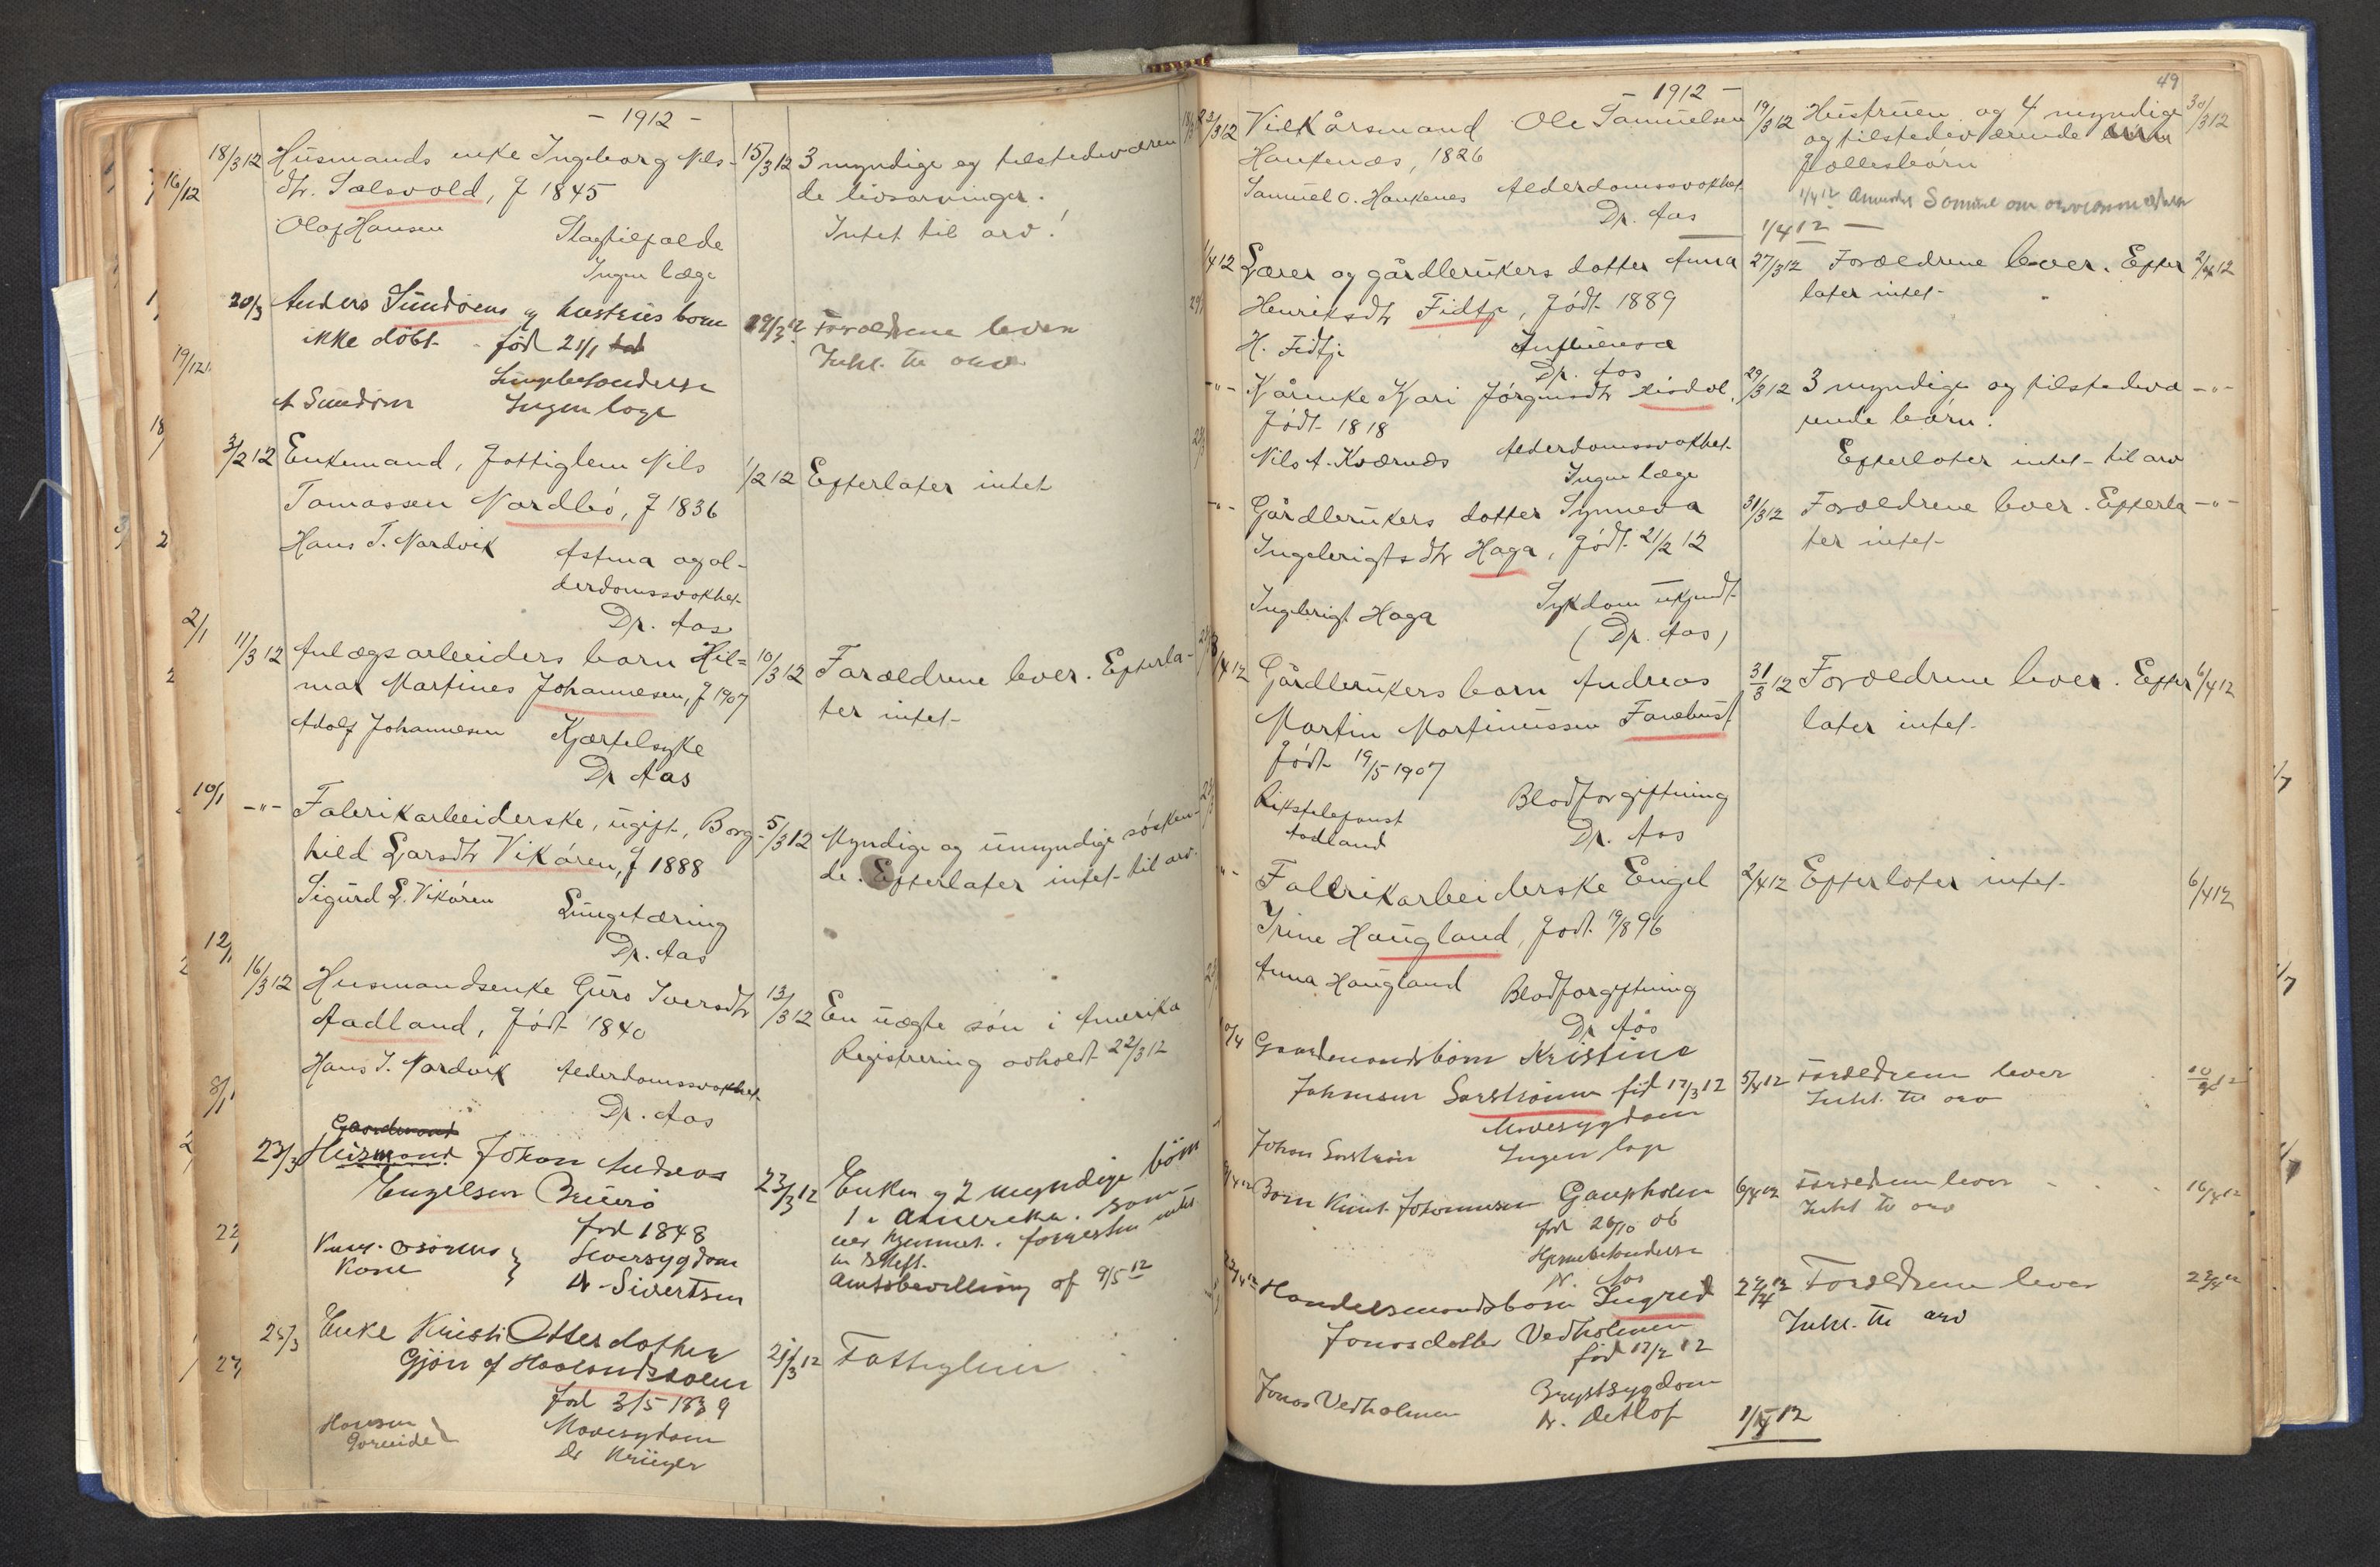 - 1912 -
18/3 12 Husmands enke Ingeborg Nils- 15/3 12 3 myndige og tilstedeværen
dtr. Sælsvold, f 1845 de livsarvinger.
Olaf Hansen Slagtilfælde Intet til arv!
Ingen læge
20/3 Anders Sundøens og hustrus barn 19/3 12 Forældrene lever
ikke døbt - født 21/1 Intet til arv
Lungebetændelse
A Sundøen Ingen læge
3/2 12 Enkemand, fattiglem Nils 1/2 12 Efterlater intet
Tomassen Nordbø, f 1836
Hans T. Nordvik Astma og al-
derdomssvakhet
Dr. Aas
11/3 12 Anlægsarbeiders barn Hil= 10/3 12 Forældrene lever. Efterla-
mar Martines Johannesen, f 1907 ter intet-
Adolf Johannesen Kjertelsyke
Dr Aas
-"- Fabrikarbeiderske, ugift, Borg- 5/3 12 Myndige og umyndige søsken-
hild Larsdtr Vikøren, f 1888 de. Efterlater intet til arv.
Sigurd L. Vikøren Lungetæring
Dr. Aas
16/3 12 Husmandsenke Guro Iversdtr 13/3 12 En uægte søn i Amerika
Aadland, født 1840 Registrering avholdt 22/3 12
Hans J. Nordvik Alderdomssvakhet
Dr. Aas
Gaardmand
23/3 Husmand Johan Andreas 23/3 12 Enken og 2 myndige börn
Engelsen Bruerö 1 i Amerika.
født 1848
Kone Leversygdom
Dr Sivertsen Amtsbevilling af 9/5 12
25/3 Enke Kristi Otterdotter 21/3 12 Fattiglem
Gjön af Haalandsdalen
født 3/5 1839
Hansen Mavesygdom
Gjerveide Dr Krüger
49
- 1912 -
22/3 12 Vilkårsmand Ole Samuelsen 19/3 12 Hustruen og 4 myndige 30/3 12
Haukenæs, 1826 og tilstedeværende
Samuel O. Haukenes Alderdomssvakhet fællesbørn
Dr. Aas 1/4 12
1/4 12 -
1/4 12 Lærer og gårdbrukers datter Anna 27/3 12 Forældrene lever. Efter 2/4 12
Henriksdtr Fidtje, født 1889 later intet-
H. Fidtje Influensa
Dr. Aas
-"- Kårenke Kari Jørgensdtr 29/3 12 3 myndige og tilstedevæ -"-
født 1818 rende børn.
Nils A. Kværnæs Alderdomssvakhet Efterlater intet til arv
Ingen læge
-"- Gårdbrukers datter Synneva 31/3 12 Forældrene lever. Efterla -"-
Ingebrigtsdtr Haga, født 21/2 12 ter intet-
Ingebrigt Haga Sykdom ukjendt
(Dr. Aas)
/4 12 Gårdbrukers barn Andreas 31/3 12 Forældrene lever. Efter 6/4 12
Martin Martinussen Færebust later intet-
født 19/5 1907
Rikstelefonst Blodforgiftning
Aadland Dr. Aas
-"- Fabrikarbeiderske Engel 2/4 12 Efterlater intet- 6/4 12
Trine Haugland, født 19/8 96
Anna Haugland Blodforgiftning
Dr Aas
Gaardmandsbarn Kristine 5/4 12 Forældrene lever 10/4 12
Johansen Sorstrønen født 12/3 12 Intet til arv
Mavesygdom
Johan Sorstrøn Ingen læge
Barn Knut Johannesen Gaupholm 6/4 12 Forældrene lever 16/4 12
født 26/10 06 Intet til arv
Hjernebetændelse
Dr. Aas
Handelsmandsbarn Ingrid 22/4 12 Forældrene lever 22/4 12
Jonasdatter Vedholmen Intet til arv
född 12/2 12
Jonas Vedholmen Brystsygdom
Dr. Detlof 1/5 12